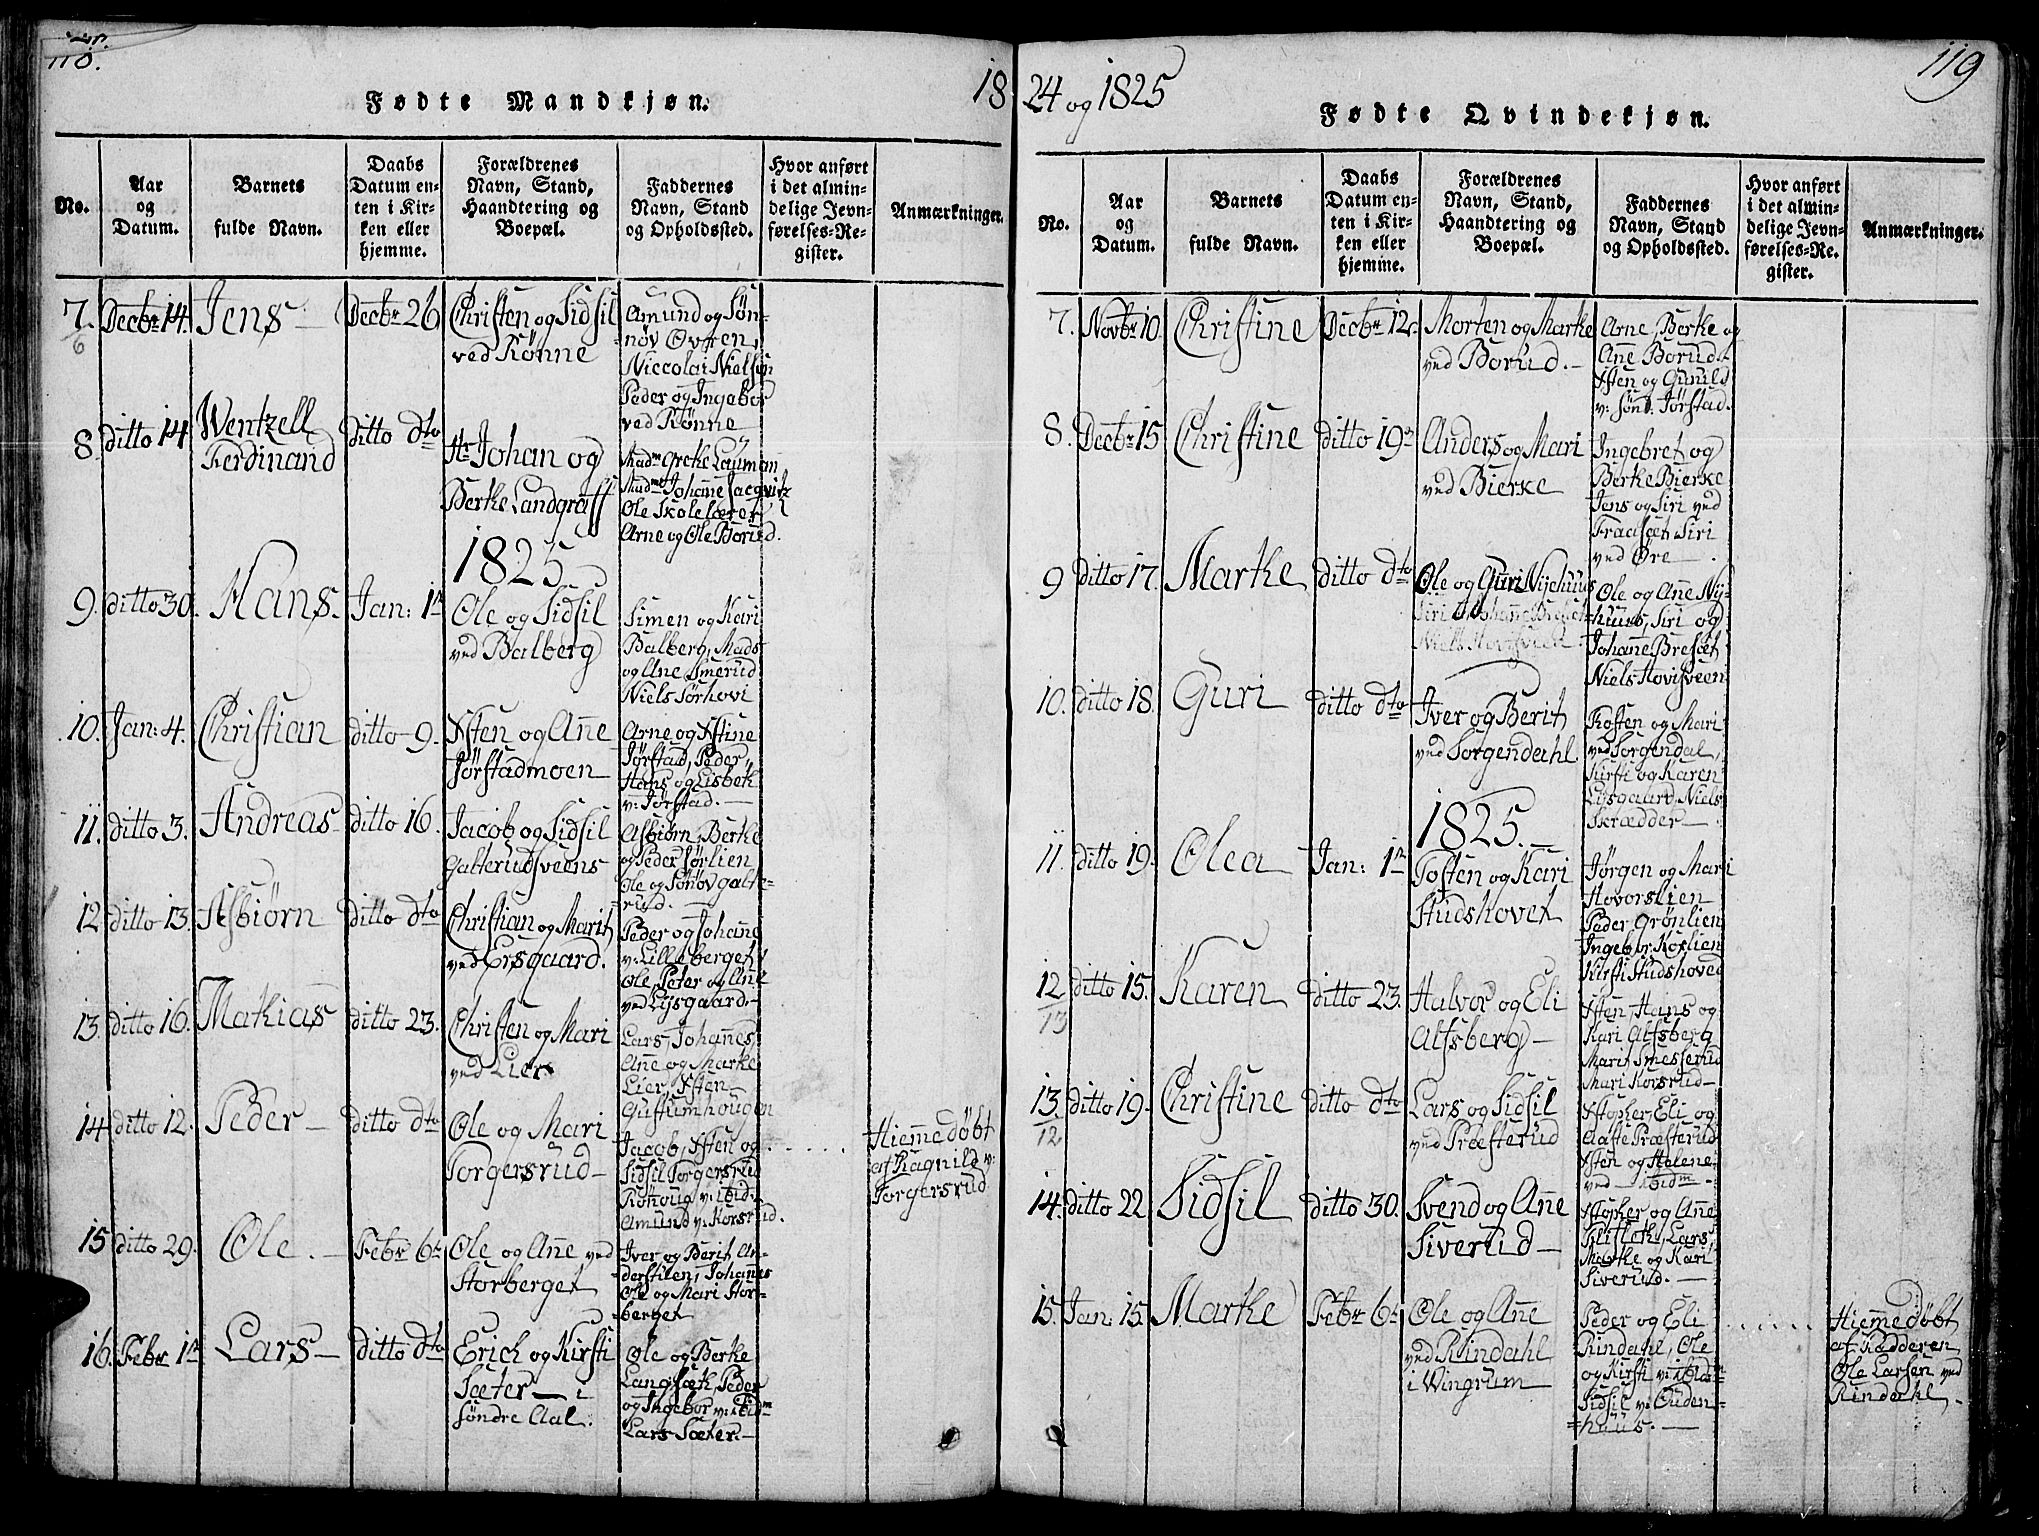 118.
Fødte Mandkjøn.
18
No.
Aar
og
Datum.
Barnets
fulde Navn.
Daabs
Datum en-
ten i Kir-
ken eller
hjemme.
Forældrenes
Navn, Stand,
Haandtering og
Boepæl.
Faddernes
Navn, Stand
og Opholdssted.
Hvor anført
i det almin-
delige Jevn-
førelses-Re-
gister.
Anmærkninger.
7.
6
Decbr 14.
Jens
Decbr 26
Christen og Sidsil
ved Rønne
Amund og Søn-
nøv Øvren,
Niccolai Nielsen
Peder og Ingebor
ved Rønne
8.
ditto 14
Wentzell
Ferdinand
ditto dto
Hr Johan og
Berte Landgraff
Madm Grethe Lauman
Madme Johanne
Ole Skolelærer,
Arne og Ole Borud.
1825
9.
ditto 30.
Hans.
Jan: 1n
Ole og Sidsil
ved Balberg
Simen og Kari
Balberg, Mads
og Ane Smerud
Niels Sørhovi
10.
Jan: 4.
Christian
ditto 9.
Xsten og Anne
Jørstadmoen
Arne og Xstine
Jørstad, Peder,
Hans og Lisbeth
v: Jørstad.
11.
ditto 3.
Andreas
ditto 16.
Jacob og Sidsil
Galterudsveens
Asbiørn, Berthe
og Peder Sørlien
Ole og Sønøv Galte-
rud.
12
ditto 13.
Asbiørn
ditto dto
Christian og Marit
ved Ersgaard.
Peder og Johanne
v: Lilleberget
Ole, Peter og Anne
ved Lysgaard.
13.
ditto 16.
Mathias
ditto 23.
Christen og Mari
ved Lier
Lars, Johannes,
Anne og Marthe
Lier, Xsten
Gustumhougen
14
ditto 12.
Peder
ditto dto
Ole og Mari
Torgersrud
Jacob, Xsten og
Sidsil Torgersrud
v: ibid.
Amund v: Korsrud.
Hiemmedøbt
af Ragnild v:
Torgersrud
15
ditto 29.
Ole.
Febr 6te
Ole og Anne ved
Storberget
Iver og Berit An-
derstilen, Johannes
Ole og Mari Stor-
berget
16.
Febr 1n
Lars
ditto dto
Erich og Kirsti
Sæter i
Søndre Aal.
Ole og Berthe
Langsæth, Peder
og Ingebor v: ibidm
Lars Sæter.
24 og 1825
119
Fødte Qvindekjøn.
No.
Aar
og
Datum.
Barnets
fulde Navn.
Daabs
Datum en-
ten i Kir-
ken eller
hjemme.
Forældrenes
Navn, Stand,
Haandtering og
Boepæl.
Faddernes
Navn, Stand
og Opholdssted.
Hvor anført
i det almin-
delige Jevn-
førelses-Re-
gister.
Anmærkninger.
7.
Novbr 10.
Christine
Decbr 12.
Morten og Marthe
ved Borud.
Arne, Berthe og
Anne Borud.
Xsten og Gunild
v: Sønd. Jørstad.
8.
Decbr 15
Christine
ditto 19n
Anders og Mari
ved Bierke
Ingebret og
Berthe Bierke
Jens og Siri ved
Siri
ved Øre
9
ditto 17.
Marthe
ditto dto
Ole og Guri Nyehuus
Siri og Johanne Bresæt
Niels Hovisveen
Ole og Ane Ny-
huus, Siri og
Johanne Bresæt
Niels Hovisveen
10.
ditto 18.
Guri
ditto dto
Iver og Berit
ved Sorgendahl
Kosten og Mari
ved Sorgendal,
Kirsti og Karen
Lysgaard Niels
Skrædder
1825.
11.
ditto 19.
Olea
Jan: 1n
Tosten og Kari
Studshovet
Jørgen og Mari
Hovorslien
Peder Grønlien
Ingebr: Koxlien
Kirsti Studshoved
12
13
ditto 15.
Karen
ditto 23.
Halvor og Eli
Altsberg
Xsten, Hans og
Kari Altsberg
Marit Smesserud
Mari Korsrud
13
12
ditto 19.
Christine
ditto dto
Lars og Sidsil
ved Præsterud
Xstopher, Eli og
Aaste Præsterud
Xsten og Helene
ved ibidm
14.
ditto 22
Sidsil
ditto 30.
Svend og Anne
Siverud
Xstopher og Anne
Lars
Marthe og Kari
Siverud.
15.
Jan: 15.
Marthe
Febr 6te
Ole og Anne
ved Rindahl
i Wingrum
Peder og Eli
Rindahl, Ole
og Kirsti v: ibidm
Sidsil v: Euden-
huus.
Hiemmedøbt
af Fadderen
Ole Larsen ved
Rindahl.